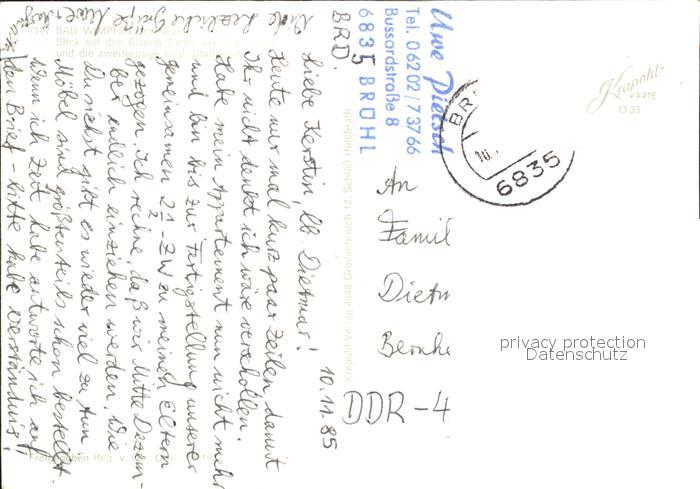 Uwe Pietsch
Tel. 06202/73766
Bussardstraße 8
6835 BRÜHL
BRD.
10.11.85
Liebe Kerstin, lb. Dietmar!
Heute nur mal kurz paar Zeilen damit
Ihr nicht denkt ich wäre verschollen.
Habe mein Appartement nun nicht mehr
und bin bis zur Fertigstellung unserer
gemeinsamen 2½-ZW zu meinen Eltern
gezogen. Ich rechne, daß wir Mitte Dezem-
ber endlich einziehen werden. Wie
Du siehst gibt es wieder viel zu tun.
Möbel sind größtenteils schon bestellt.
Wenn ich Zeit habe antworte ich auf
den Brief - bitte habe Verständnis!
Viele herzliche Grüße Uwe
7107 BAD WIMPFEN
Blick auf den Blauen Turm
und die zweitürmige
Krapohl-Verlag 4048 Grevenbroich 12, Schloß Hülchrath
Krapohl-
KARTE
O 33
BR
10.
6835
An
Famil
Dietm
Bernha
DDR-4
privacy protection
Datenschutz